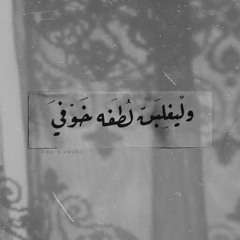 ولَيغلِبَنّ لُطفَه خَوْفيَ